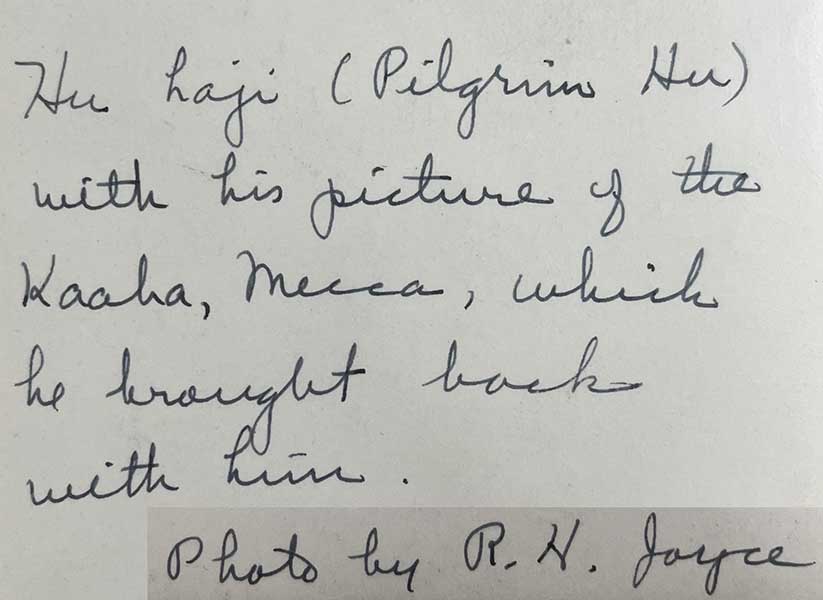 Hu haji (Pilgrim Hu)
with his picture of the
Kaaba, Mecca, which
he brought back
with him.
Photo by R. H. Joyce